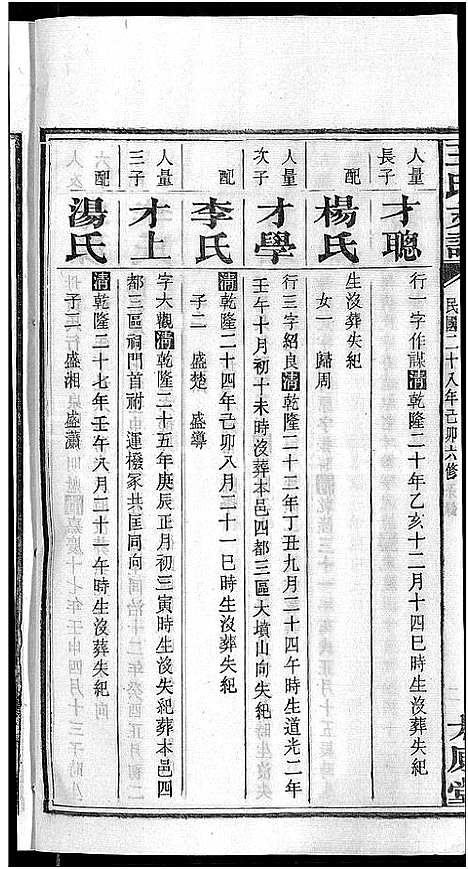 民國二十八年己卯六修
人量長子
才聰
行一字作謀清乾隆二十年乙亥十二月十四巳時生沒葬失紀
配
楊氏
生沒葬失紀
女一 歸周
人量次子
才學
行三字紹良清乾隆二十二年丁丑九月二十四午時生道光二年
壬午十月初十未時沒葬本邑四都三區大墳山向失紀
配
李氏
清乾隆二十四年己卯八月二十一巳時生沒葬失紀
子二 盛楚 盛導
人量三子
才上
字大觀清乾隆二十五年庚辰正月初三寅時生沒失紀葬本邑四
都三區祠門首祔 申運撥冢共匡同向
配
湯氏
清乾隆二十七年壬午八月二十一午時生沒葬失紀
子二 盛湘 盛瀟